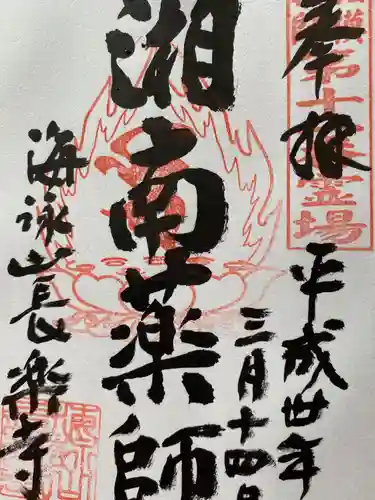 奉拝
平成廿年
三月十四日
湘南薬師
海詠山長楽寺
霊場